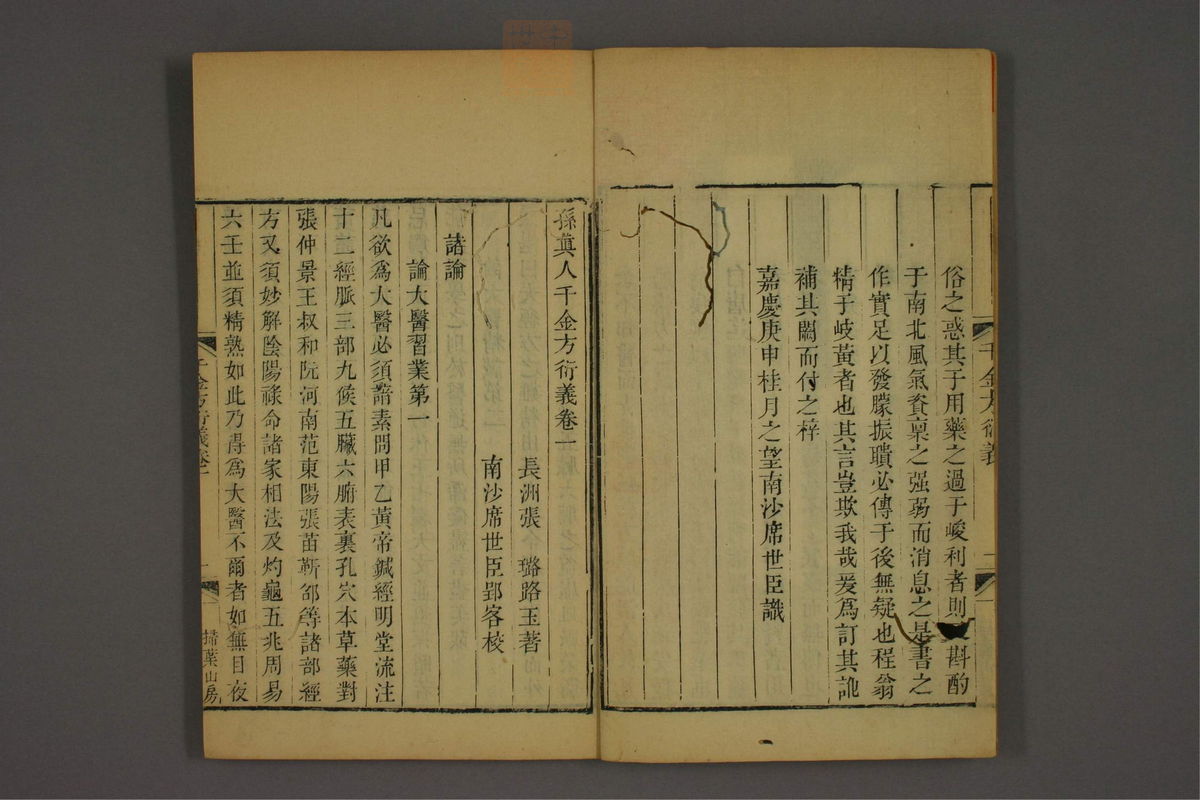 千金方衍義
俗之惑其于用藥之過于峻利者則 斟酌
于南北風氣資稟之强弱而消息之是書之
作實足以發矇振聵必傳于後無疑也程翁
精于岐黃者也其言豈欺我哉爰爲訂其訛
補其闕而付之梓
嘉慶庚申桂月之望南沙席世臣識
孫眞人千金方衍義卷一
長洲張 璐路玉著
南沙席世臣郢客校
諸論
論大醫習業第一
凡欲爲大醫必須諳素問甲乙黃帝鍼經明堂流注
十二經脈三部九候五臟六腑表裏孔穴本草藥對
張仲景王叔和阮河南范東陽張苗靳邵等諸部經
方又須妙解陰陽祿命諸家相法及灼龜五兆周易
六壬並須精熟如此乃得爲大醫不爾者如無目夜
千金方衍義卷一
一
掃葉山房